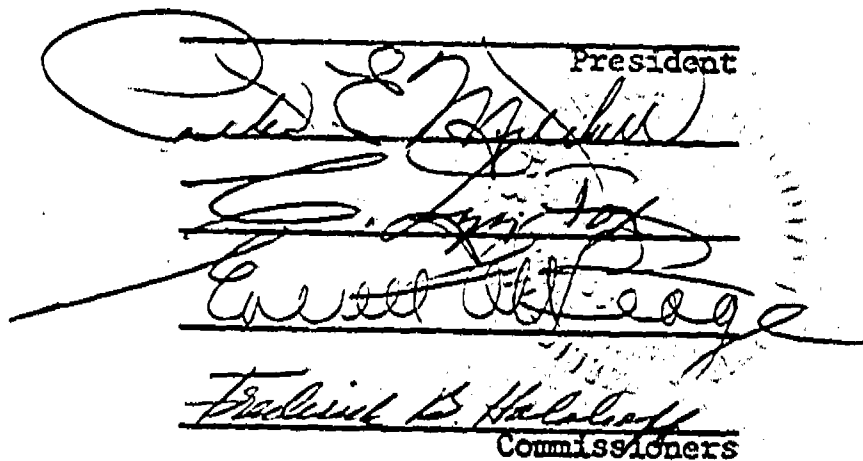 President
Peter E. Mitchell
C. Lyn Fox
Everett C. McKeage
Frederick B. Holoboff
Commissioners